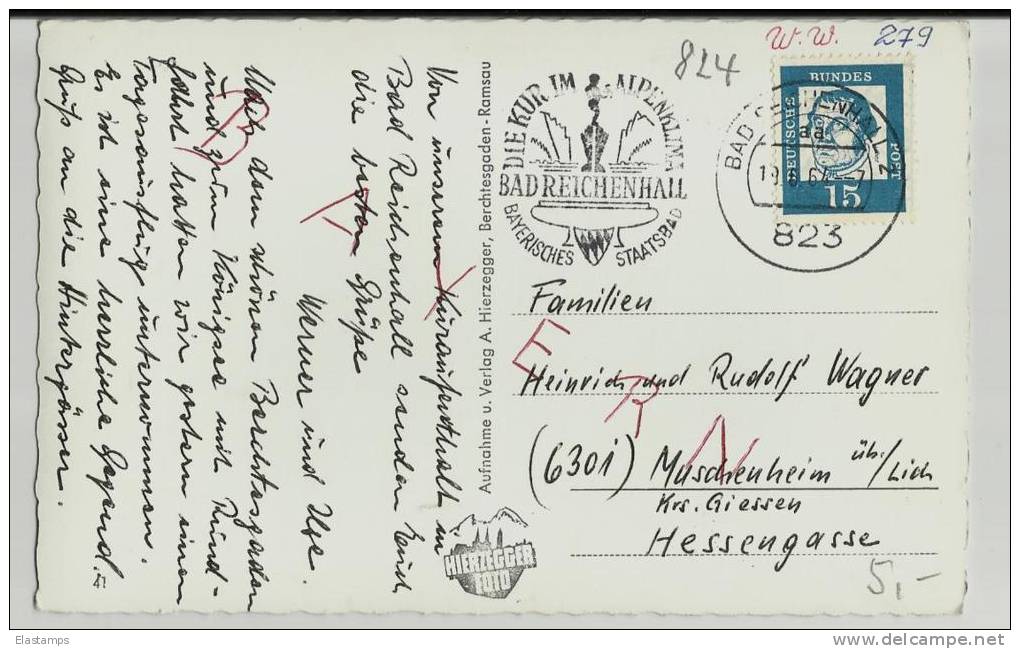 W.W. 279
824
DIE KUR IM ALPENKLIMA
BAD REICHENHALL
BAYERISCHES STAATSBAD
BAD REICHENHALL 2
aa
823
DEUTSCHE BUNDES POST
15
Von unserem Kuraufenthalt in
Bad Reichenhall senden Euch
die besten Grüße
Werner und Ute.
Nach dem schönen Berchtesgaden
und zum Königsee mit Rund-
fahrt hatten wir gestern einen
Tagesausflug unternommen.
Es ist eine herrliche Gegend.
Gruß an die Hintergässer.
Aufnahme u. Verlag A. Hierzegger, Berchtesgaden-Ramsau
Familien
Heinrich und Rudolf Wagner
(6301) Muschenheim üb./Lich
Krs. Giessen
Hessengasse
HIERZEGGER
FOTO
B
E
R
N
5,-
Elastamps
www.delcampe.net